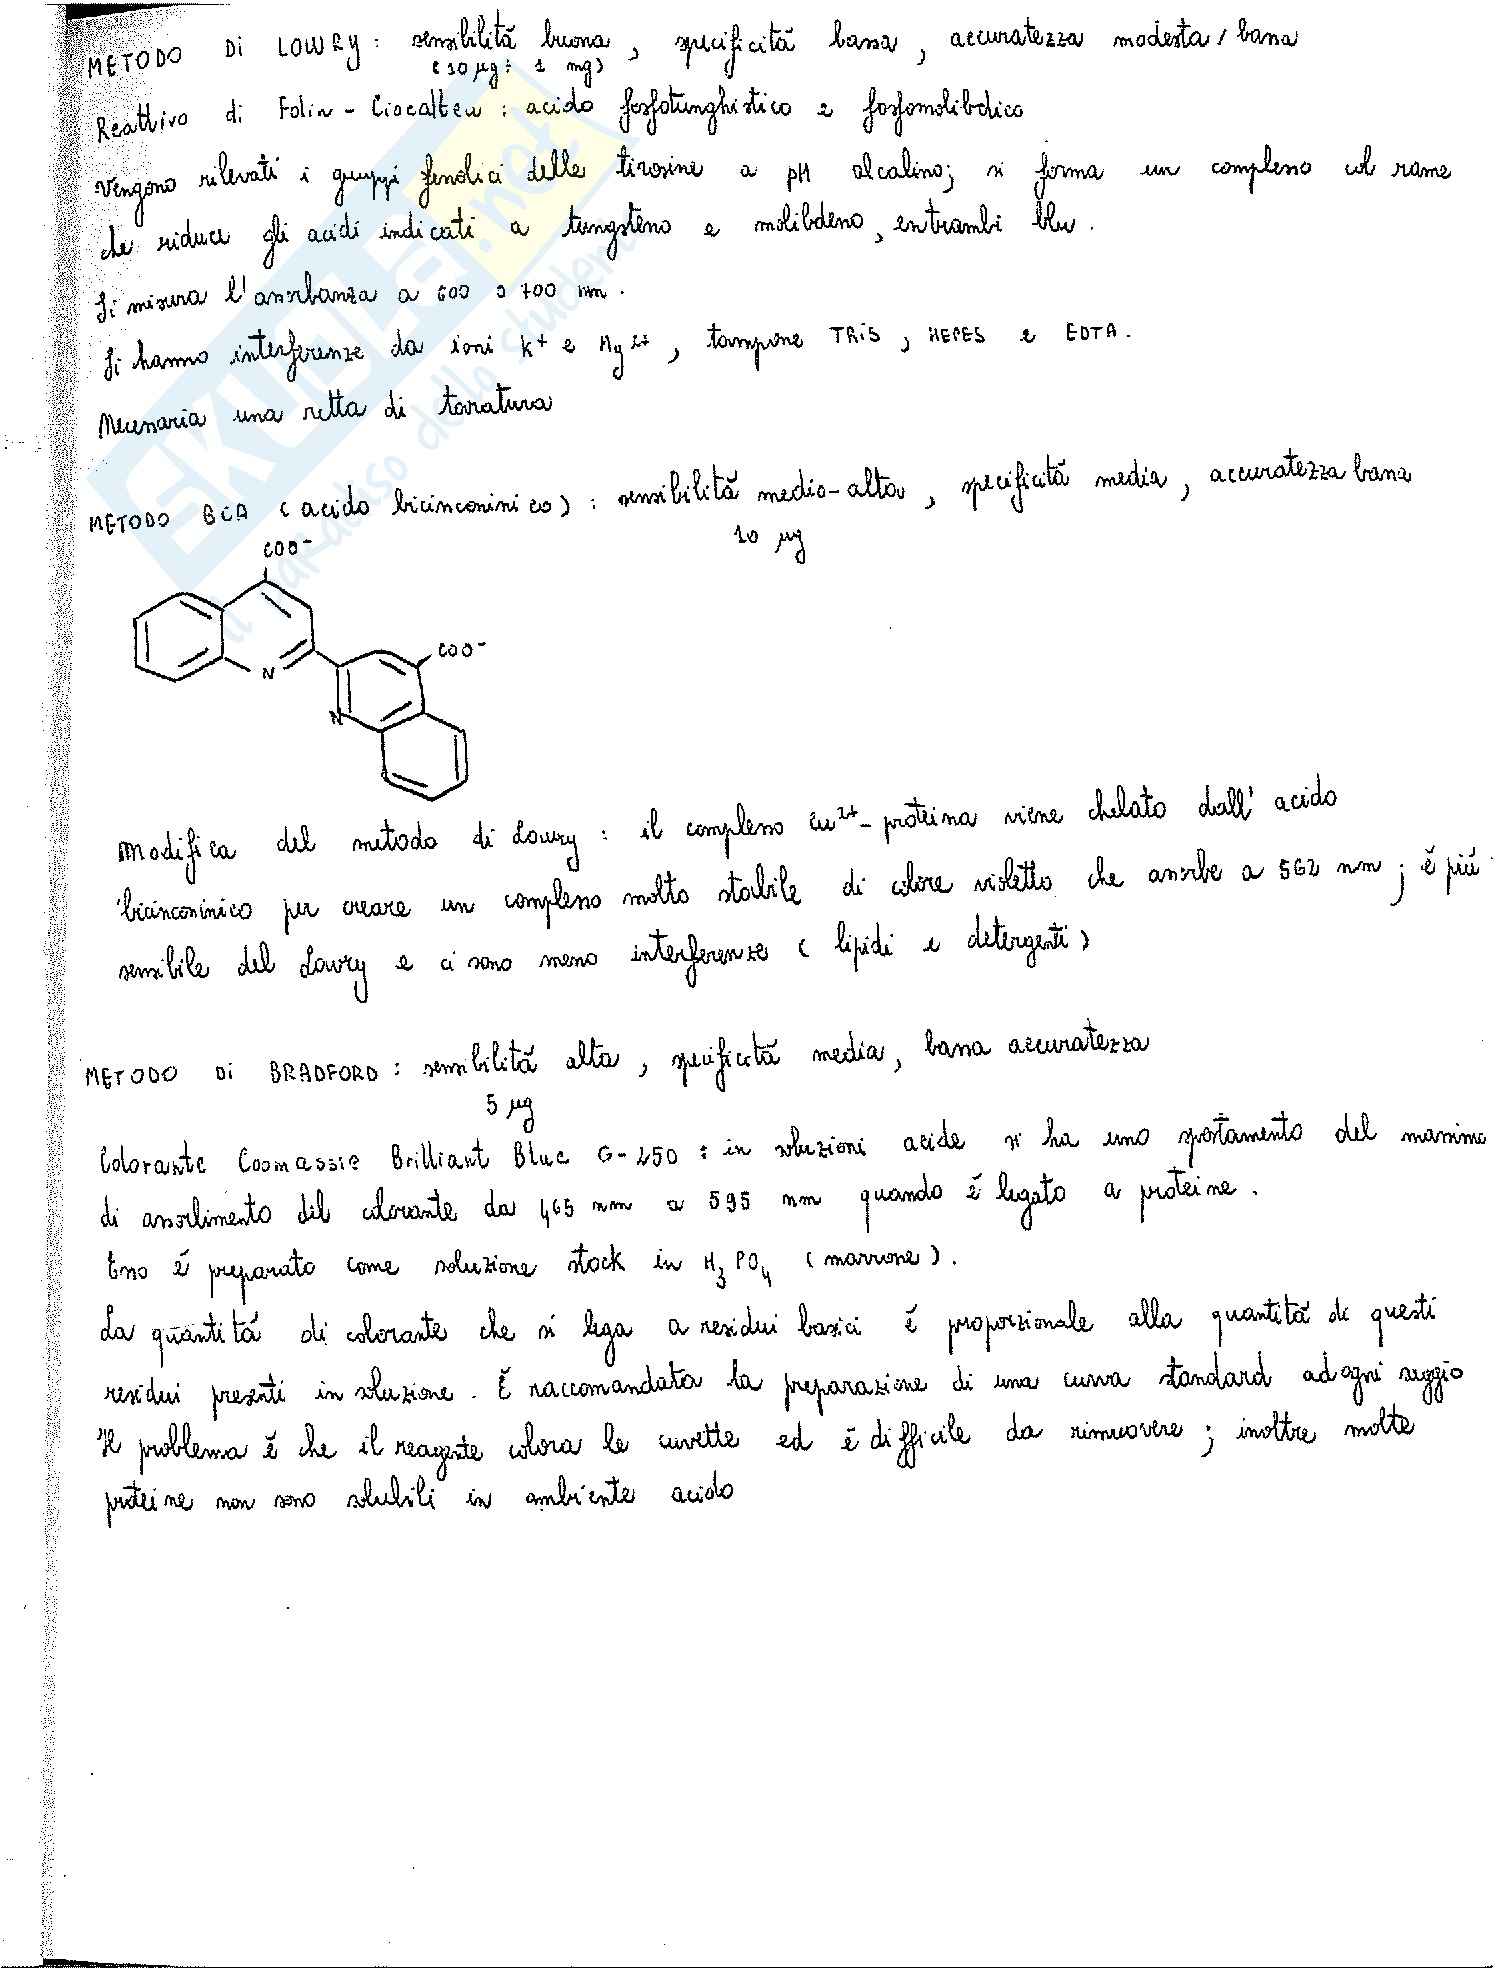 METODO Di LOWRY : sensibilità buona , specificità bassa , accuratezza modesta / bassa
( 10 µg ÷ 1 mg )
Reattivo di Folin - Ciocalteu : acido fosfotunghistico e fosfomolibdico
Vengono rilevati i gruppi fenolici delle tirosine a pH alcalino ; si forma un complesso col rame
che riduce gli acidi indicati a tungsteno e molibdeno , entrambi blu .
Si misura l' assorbanza a 600 o 700 nm .
Si hanno interferenze da ioni K+ e Mg2+ , tampone TRIS , HEPES e EDTA .
Necessaria una retta di taratura
METODO BCA ( acido bicinconinico ) : sensibilità medio-alta , specificità media , accuratezza bassa
10 µg
COO-
COO-
N
N
Modifica del metodo di Lowry : il complesso Cu2+ - proteina viene chelato dall' acido
bicinconinico per creare un complesso molto stabile di colore violetto che assorbe a 562 nm ; è più
sensibile del Lowry e ci sono meno interferenze ( lipidi e detergenti )
METODO Di BRADFORD : sensibilità alta , specificità media , bassa accuratezza
5 µg
Colorante Coomassie Brilliant Blue G-250 : in soluzioni acide si ha uno spostamento del massimo
di assorbimento del colorante da 465 nm a 595 nm quando è legato a proteine .
Esso è preparato come soluzione stock in H3PO4 ( marrone ) .
La quantità di colorante che si lega a residui basici è proporzionale alla quantità di questi
residui presenti in soluzione . È raccomandata la preparazione di una curva standard ad ogni saggio
Il problema è che il reagente colora le cuvette ed è difficile da rimuovere ; inoltre molte
proteine non sono solubili in ambiente acido
SKUOLA.net
il paradiso dello studente